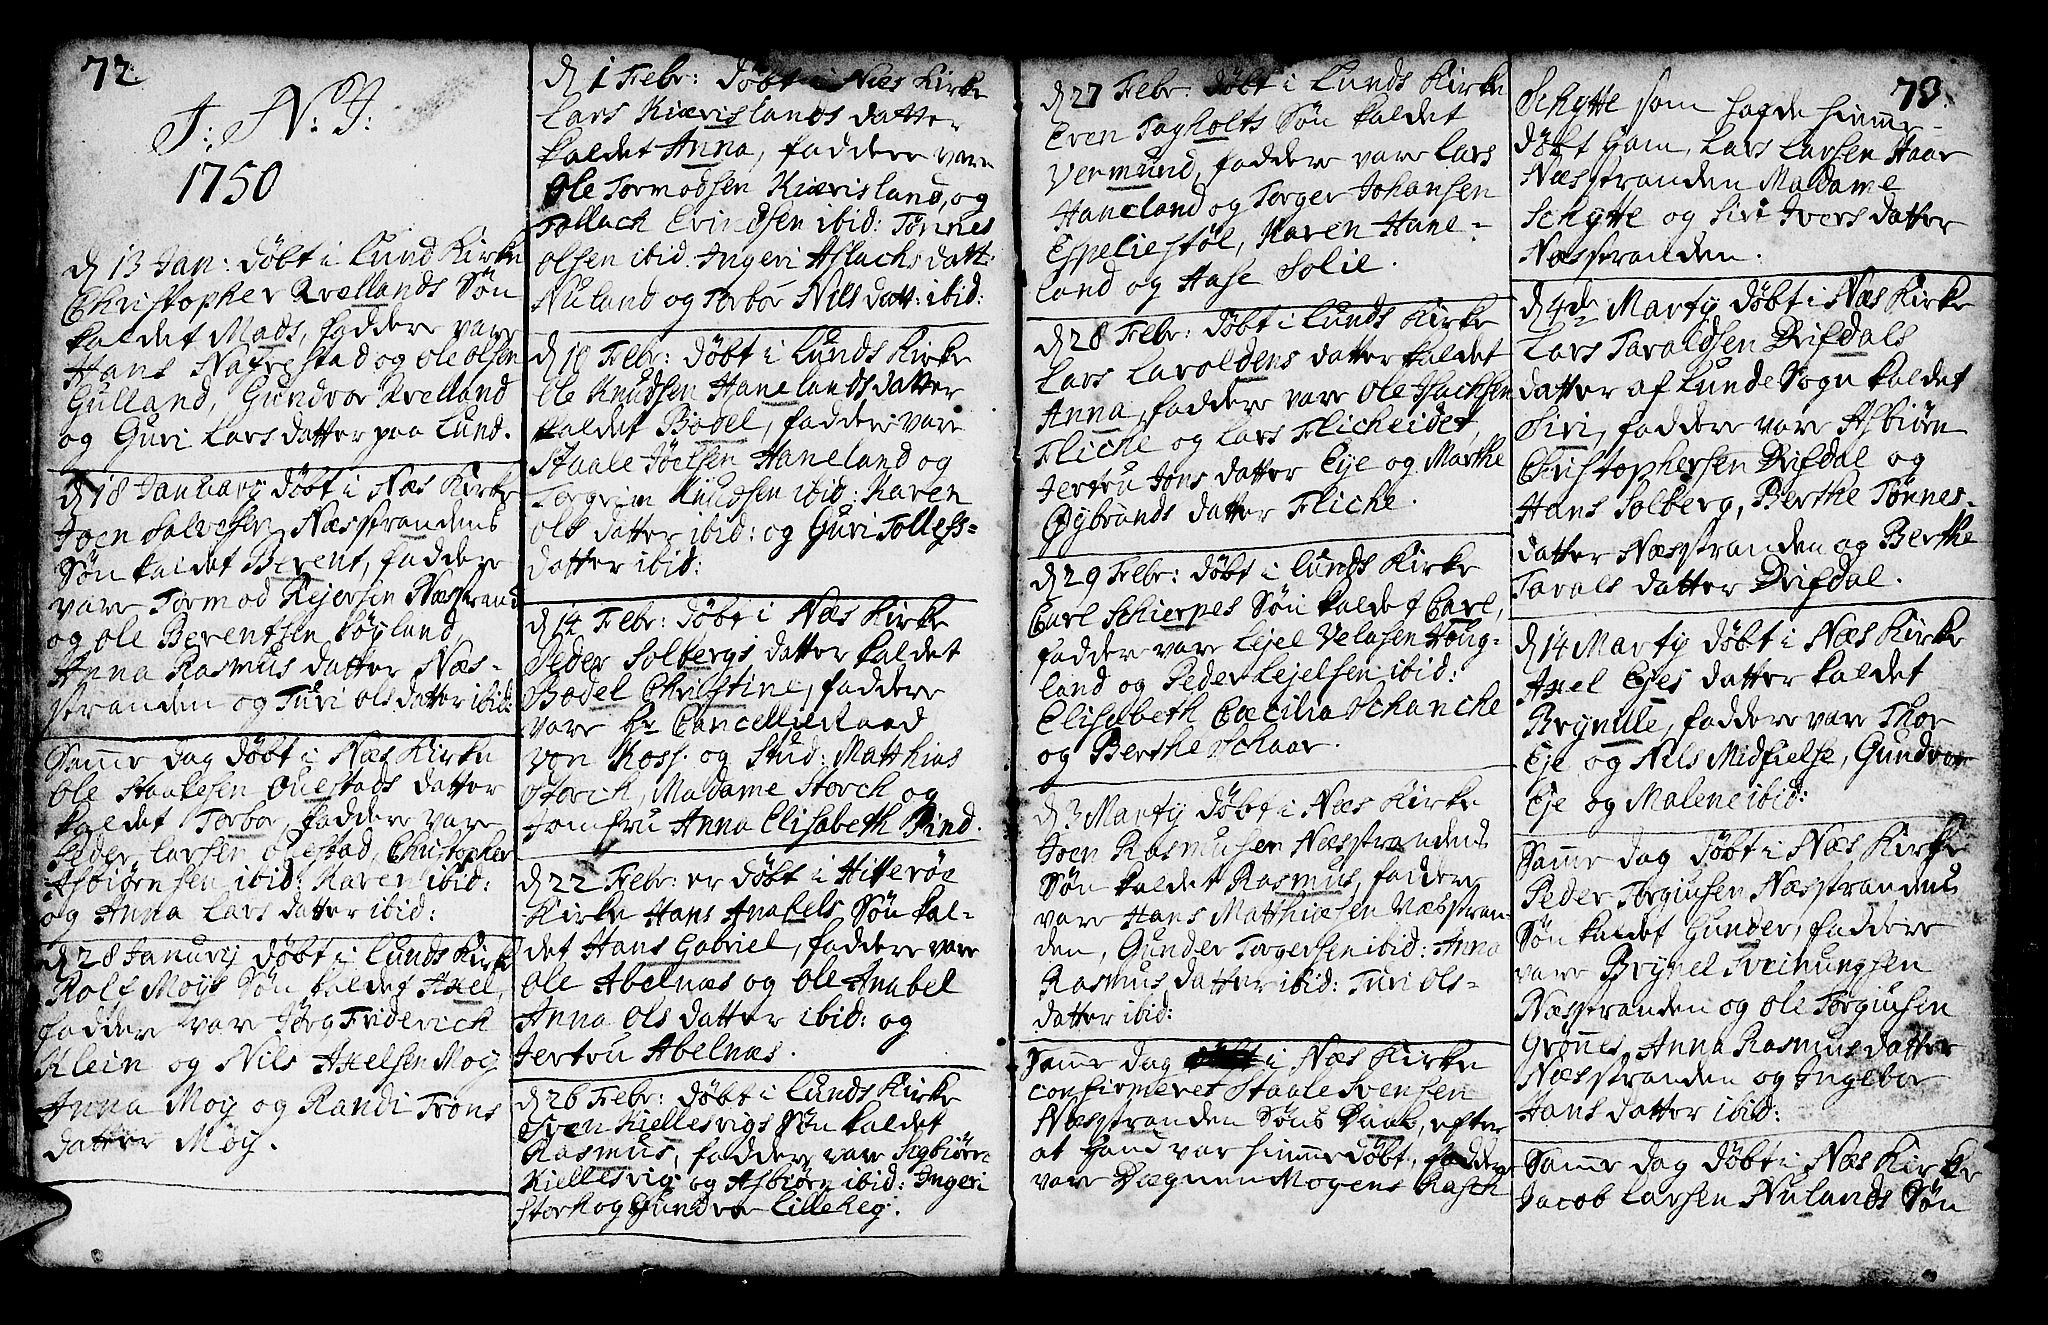 72.
J: N: J:
1750
d 13 Jan: döbt i Lund Kirke
Christopher Qvellands Sön
kaldet Mads, faddere vare
Hans Nafrestad og Ole Olsen
Gulland, Gundvor Qvelland
og Guri Lars datter paa Lund.
d 18 January döbt i Næs Kirke
Joen Salvesen Næsstrandens
Sön kaldet Berent, faddere
vare Tormod Rejersen Næsstrand
og Ole Berentsen Köyland,
Anna Rasmus datter Næs-
stranden og Turi Ols datter ibid:
Samme dag döbt i Næs Kirke
Ole Staalesen Qvestads datter
kaldet Torbor, faddere vare
Peder Larsen Qvestad, Christopher
Asbiörnsen ibid: Karen ibid:
og Anna Lars datter ibid:
d 28 January döbt i Lunds Kirke
Rolf Moys Sön kaldet Axel,
faddere var Jörg Friderich
Klein og Nils Axelsen Moy
Anna Moy og Randi Trons
datter Moy.
d 1 Febr: döbt i Næs Kirke
Lars Kiærislands datter
kaldet Anna, faddere vare
Ole Tormodsen Kiærisland, og
Tollach Evindsen ibid: Tönnes
Olsen ibid. Ingeri Aslachs datt:
Nuland og Torbor Nils datt: ibid:
d 10 Febr: döbt i Lunds Kirke
Ole Knudsen Hanelands datter
kaldet Bodel, faddere vare
Staale Joelsen Haneland og
Torgrim Knudsen ibid: Karen
Ols datter ibid: og Guri Tolless-
datter ibid:
d 14 Febr: döbt i Næs Kirke
Peder Solbergs datter kaldet
Bodel Christine, faddere
vare Hr Cancellieraad
von Koss. og Stud: Matthias
Storch, Madame Storch og
Jomfru Anna Elisabeth Pind.
d 22 Febr: er döbt i Hitteröe
Kirke Hans Anabels Sön kal-
det Hans Gabriel, faddere vare
Ole Abelnæs og Ole Anabel
Anna Ols datter ibid: og
Jertru Abelnæs.
d 26 Febr: döbt i Lunds Kirke
Sven Kiellesvigs Sön kaldet
Rasmus, faddere vare Sigbiörn
Kiellesvig og Asbiörn ibid: Ingeri
Stork og Gundvor Lilleheg.
d 27 Febr: döbt i Lunds Kirke
Even Tagholts Sön kaldet
Vermund, faddere vare Lars
Haneland og Torger Johansen
Espeliestöl, Karen Hane-
land og Hase Solie.
d 28 Febr: döbt i Lunds Kirke
Lars Laroldens datter kaldet
Anna, faddere vare Ole Isachsen
Fliche og Lars Flicheidet,
Jertru Jons datter Eje og Marthe
Öybrands datter Fliche.
d 29 Febr: döbt i Lunds Kirke
Carl Schierpes Sön kaldet Carl,
faddere vare Lejel Velasen Houg-
land og Peder Lejelsen ibid:
Elisabeth Cæcilia Schanche
og Berthe Schaar.
d 3 Martij döbt i Næs Kirke
Joen Rasmusen Næsstrandens
Sön kaldet Rasmus, faddere
vare Hans Matthiesen Næsstran-
den, Gunder Torgersen ibid: Anna
Rasmus datter ibid: Turi Ols-
datter ibid:
Samme dag i Næs Kirke
confirmeret Staale Svensen
Næsstranden Söns Daab, efter
at hand var hiemmedöbt, faddere
vare Dægnen Mogens Rasch
73.
Schytte som hafde hiemme-
döbt ham, Lars Larsen Haar
Næsstranden Madame
Schytte og Siri Jvers datter
Næsstranden.
d 4de Martij döbt i Næs Kirke
Lars Taraldsen Drifdals
datter af Lunde Sogn kaldet
Siri, faddere vare Asbiörn
Christophersen Drifdal og
Hans Solberg, Berthe Tönnes-
datter Næsstranden og Berthe
Tarals datter Drifdal.
d 14 Martij döbt i Næs Kirke
Axel Ejes datter kaldet
Brynille, faddere vare Thor
Eje og Nils Midfielse, Gundvor
Eje og Malene ibid:
Samme dag döbt i Næs Kirke
Peder Torgiusen Næsstrandens
Sön kaldet Gunder, faddere
vare Brynel Sveinungsen
Næsstranden og Ole Torgiusen
Grönnes, Anna Rasmus datter
Næsstranden og Ingebor
Hans datter ibid:
Samme dag döbt i Næs Kirke
Jacob Larsen Nulands Sön